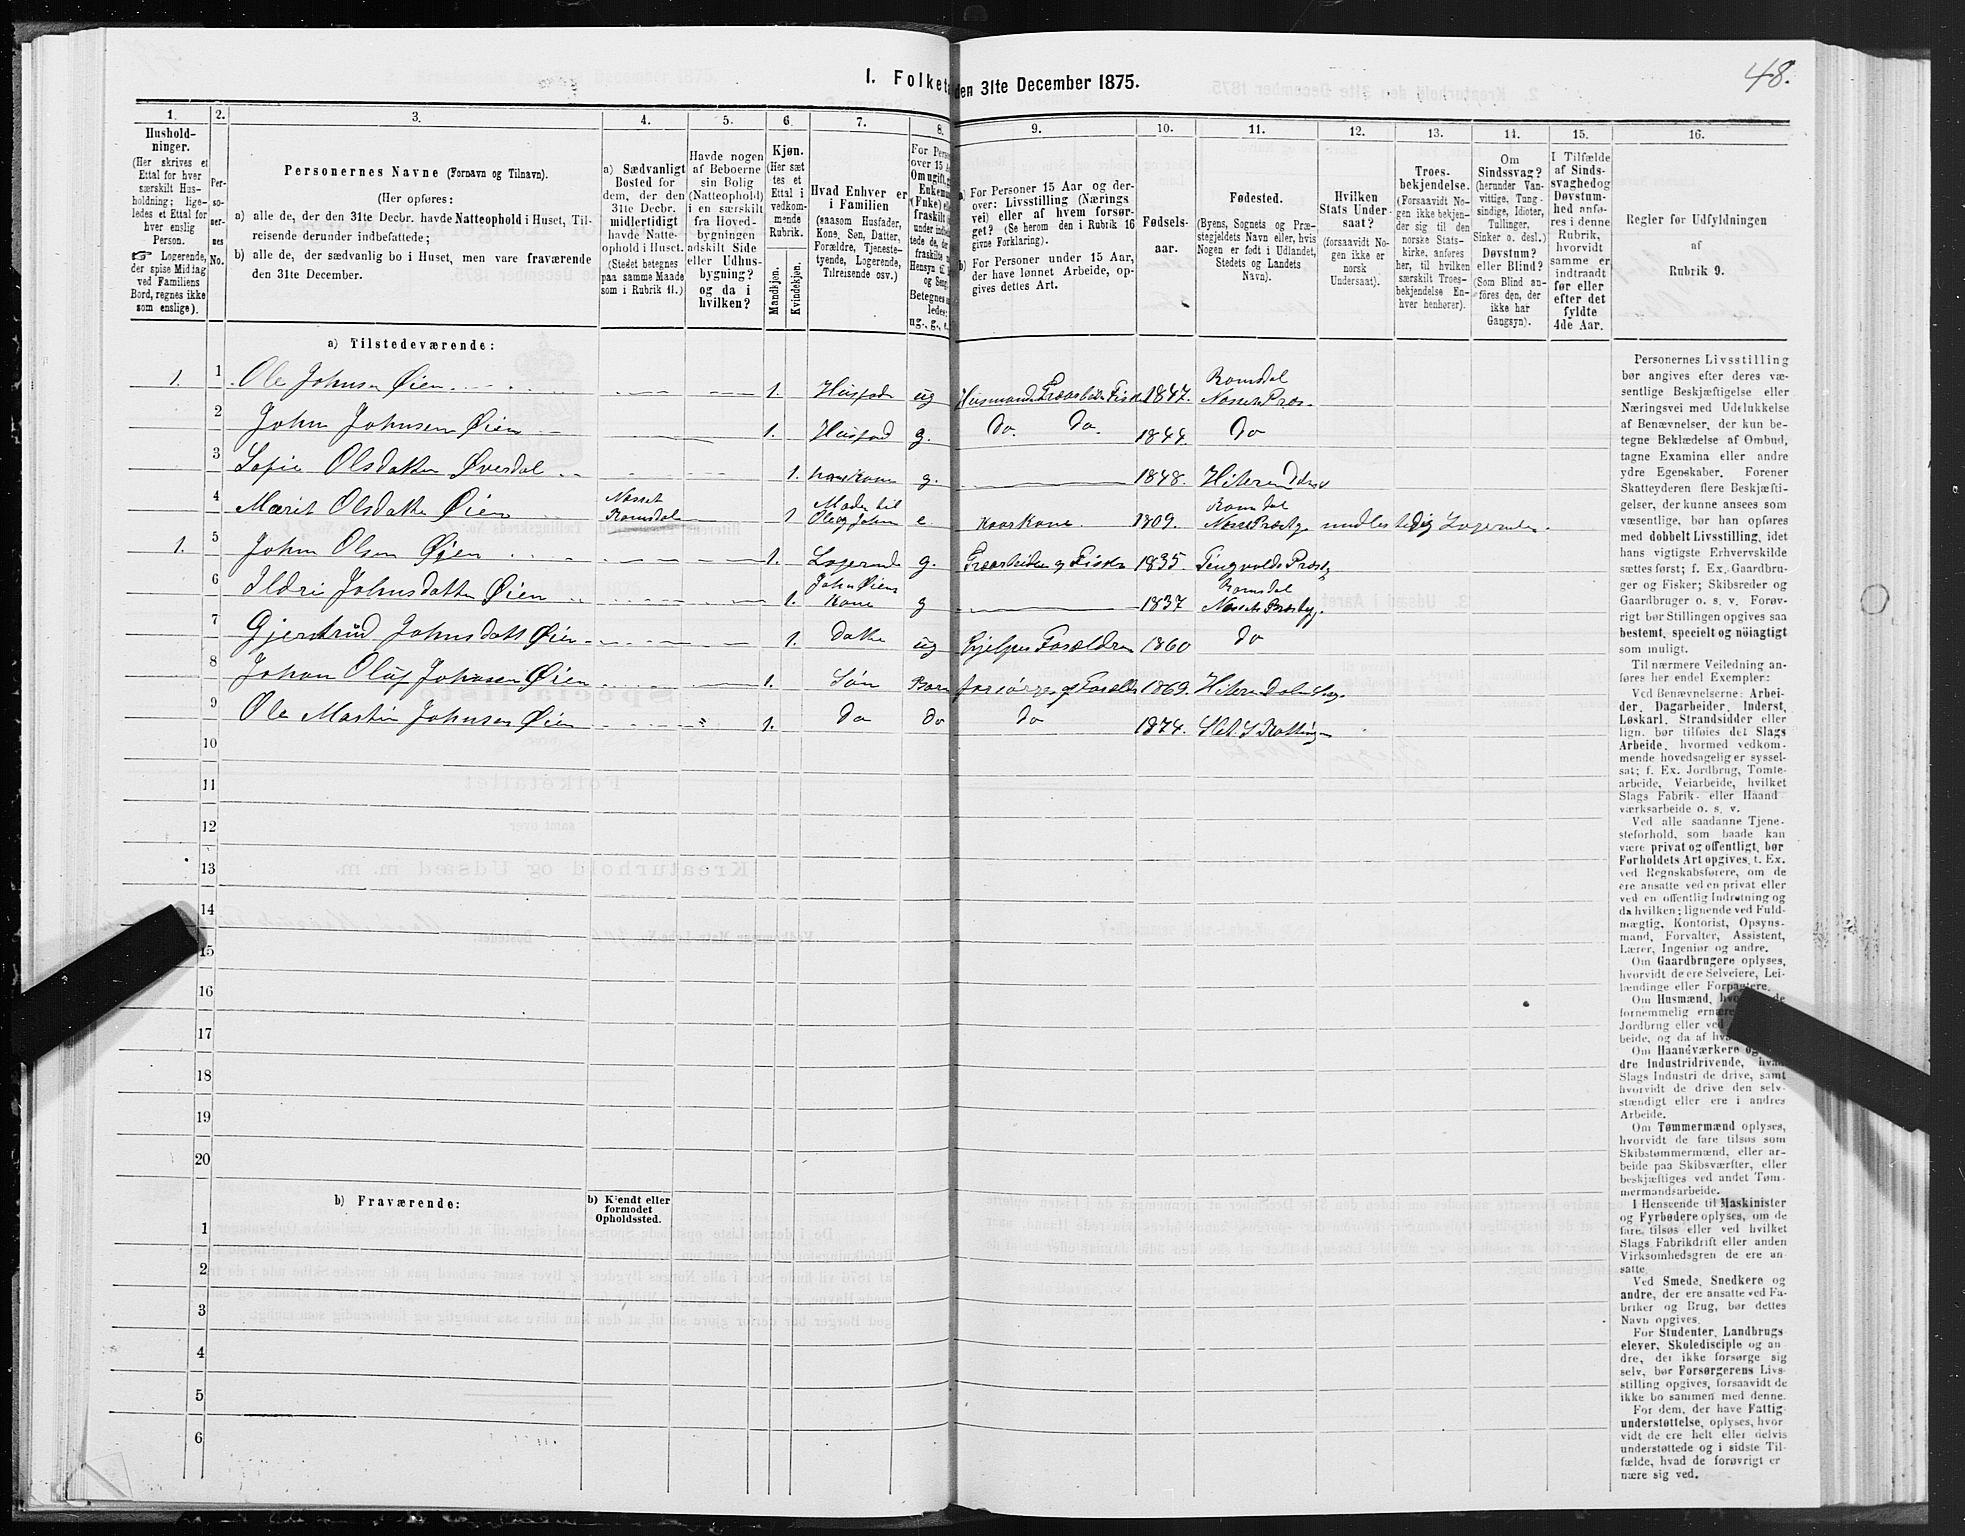 48.
I. Folketa den 31te December 1875.
1. 2. 3. 4. 5. 6. 7. 8. 9. 10. 11. 12. 13. 14. 15. 16.
Hushold-
ninger.
(Her skrives et
Ettal for hver
særskilt Hus-
holdning; lige-
ledes et Ettal for
hver enslig
Person.
☞ Logerende,
der spise Middag
ved Familiens
Bord, regnes ikke
som enslige).
Per-
so-
ner-
nes
No.
Personernes Navne (Fornavn og Tilnavn).
(Her opføres:
a) alle de, der den 31te Decbr. havde Natteophold i Huset, Til-
reisende derunder indbefattede;
b) alle de, der sædvanlig bo i Huset, men vare fraværende
den 31te December.
a) Sædvanligt
Bosted for
dem, der den
31te Decbr.
midlertidigt
havde Natte-
ophold i Huset.
(Stedet betegnes
paa samme Maade
som i Rubrik 11.)
Havde nogen
af Beboerne
sin Bolig
(Natteophold)
i en særskilt
fra Hoved-
bygningen
adskilt Side
eller Udhus-
bygning?
og da i
hvilken?
Kjøn.
(Her sæt
tes et
Ettal i
vedkom-
mende
Rubrik.
Mandkjøn.
Kvindekjøn.
Hvad Enhver er
i Familien
(saasom Husfader,
Kone, Søn, Datter,
Forældre, Tjeneste-
tyende, Logerende,
Tilreisende osv.)
For Perso
over 15 A
Om ugift, g
Enkem
(Enke) ell
fraskilt
under indbe
tede de, de
fraskilte
Hensyn til
og Seng
Betegnes
ledes:
ug., g., e.
a) For Personer 15 Aar og der-
over: Livsstilling (Nærings
vei) eller af hvem forsør-
get? (Se herom den i Rubrik 16
givne Forklaring).
b) For Personer under 15 Aar,
der have lønnet Arbeide, op-
gives dettes Art.
Fødsels-
aar.
Fødested.
(Byens, Sognets og Præ-
stegjeldets Navn eller, hvis
Nogen er født i Udlandet,
Stedets og Landets
Navn).
Hvilken
Stats Under-
saat?
(forsaavidt No-
gen ikke er
norsk
Undersaat).
Troes-
bekjendelse.
(Forsaavidt No-
gen ikke bekjen-
der sig til den
norske Stats-
kirke, anføres
her, til hvilken
særskilt Troes-
bekjendelse En-
hver henhører).
Om
Sindssvag?
(herunder Van-
vittige, Tung-
sindige, Idioter,
Tullinger,
Sinker o. desl.)
Døvstum?
eller Blind?
(Som Blind an-
føres den, der
ikke har
Gangsyn).
I Tilfælde
af Sinds-
svaghedog
Døvstum-
hed anfø-
res i denne
Rubrik,
hvorvidt
samme er
indtraadt
før eller
efter det
fyldte
4de Aar.
Regler for Udfyldningen
af
Rubrik 9.
a) Tilstedeværende:
1. 1 Ole Johnsen Øien 1. Husfad ug Husmand Træarbeider Fisk 1847. Romsdal
Nesset Præs.
2 John Johnsen Øien 1. Husfad g. Do. Do. 1844. Do
3 Sofie Olsdatter Øverdal 1. hans Kone g. 1848. Hiteren
4 Marit Olsdatter Øien Nesset
Romsdal 1 Moder til
Ole og John e. Kaarkone 1809. Romsdal
Nesset Præstg midlertidig Logerende.
1. 5 John Olsen Øien 1. Logerende g. Træarbeider og Fisker 1835. Tingvolds Præstg
6 Ildri Johnsdatter Øien 1. John Øiens
Kone g 1837 Romsdal
Nessets Præstg.
7 Gjertrud Johnsdatt Øien 1. Datter ug hjelper Forældrene 1860 Do
8 Johan Oluf Johnsen Øien 1. Søn Barn forsørges af Foreldr 1869. Hiteren
9 Ole Martin Johnsen Øien 1. Do Do Do 1874.
10
11
12
13
14
15
16
17
18
19
20
b) Fraværende:
b) Kjendt eller
formodet
Opholdssted.
1
2
3
4
5
6
Personernes Livsstilling
bør angives efter deres væ-
sentlige Beskjæftigelse eller
Næringsvei med Udelukkelse
af Benævnelser, der kun be-
tegne Beklædelse af Ombud,
tagne Examina eller andre
ydre Egenskaber. Forener
Skatteyderen flere Beskjæfti-
gelser, der kunne ansees som
væsentlige, bør han opføres
med dobbelt Livsstilling, idet
hans vigtigste Erhvervskilde
sættes først; f. Ex. Gaardbru-
ger og Fisker; Skibsreder og
Gaardbruger o. s. v. Forøv-
rigt bør Stillingen opgives saa
bestemt, specielt og nöiagtigt
som muligt.
Til nærmere Veiledning an-
føres her endel Exempler:
Ved Benævnelserne: Arbei-
der, Dagarbeider, Inderst,
Løskarl, Strandsidder eller
lign. bør tilføies det Slags
Arbeide, hvormed vedkom-
mende hovedsagelig er syssel-
sat; f. Ex. Jordbrug, Tomte-
arbeide, Veiarbeide, hvilket
Slags Fabrik- eller Haand
værksarbeide o. s. v.
Ved alle saadanne Tjene-
steforhold, som baade kan
være privat og offentligt, bør
Forholdets Art opgives, t. Ex.
ved Regnskabsførere, om de
ere ansatte ved en privat eller
ved en offentlig Indretning og
da hvilken; lignende ved Fuld-
mægtig, Kontorist, Opsyns-
mand, Forvalter, Assistent,
Lærer, Ingeniør og andre.
Om Gaardbrugere oplyses,
hvorvidt de ere Selveiere, Lei-
lændinge eller Forpagtere.
Om Husmænd,
fornemmelig
Jordbrug eller ved
beide, og da af
Om Haandværkere
dre Industridrivende,
Slags Industri de drive, samt
hvorvidt de drive den selv-
stændigt eller ere i andres
Arbeide.
Om Tømmermænd oplyses,
hvorvidt de fare tilsøs som
Skibstømmermænd, eller ar-
beide paa Skibsværfter, eller
beskjæftiges ved andet Tøm-
mermandsarbeide.
I Henseende til Maskinister
og Fyrbødere oplyses, om de
fare tilsøs eller ved hvilket
Slags Fabrikdrift eller anden
Virksomhedsgren de ere an-
satte.
Ved Smede, Snedkere og
andre, der ere ansatte ved Fa-
briker og Brug, bør dettes
Navn opgives.
For Studenter, Landbrugs
elever, Skoledisciple og an
dre, der ikke forsørge sig
selv, bør Forsørgerens Livs-
stilling opgives, forsaavidt de
ikke bo sammen med denne.
For dem, der have Fattig
understøttelse, oplyses, hvor
vidt de ere helt eller delvis
understøttede og i sidste Til-
fælde, hvad de forøvrigt er
nære sig ved.